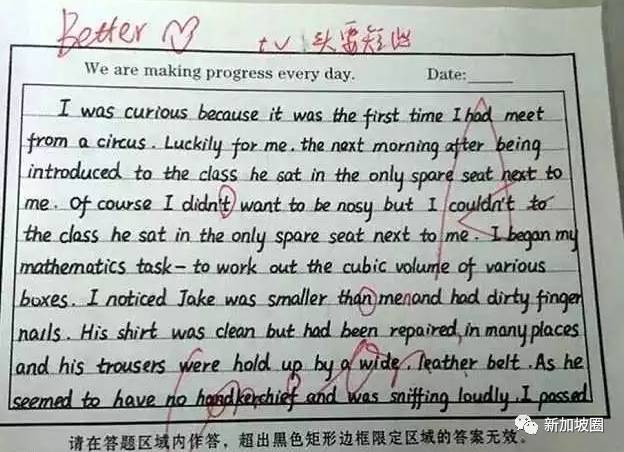 Better
t v 头要短些
We are making progress every day. Date:
I was curious because it was the first time I had meet
from a circus. Luckily for me. the next morning after being
introduced to the class he sat in the only spare seat next to
me. Of course I didn't want to be nosy but I couldn't to
the class he sat in the only spare seat next to me. I began my
mathematics task - to work out the cubic volume of various
boxes. I noticed Jake was smaller than men and had dirty finger
nails. His shirt was clean but had been repaired, in many places
and his trousers were hold up by a wide, leather belt. As he
seemed to have no handkerchief and was sniffing loudly. I passed
请在答题区域内作答，超出黑色矩形边框限定区域的答案无效。
新加坡圈